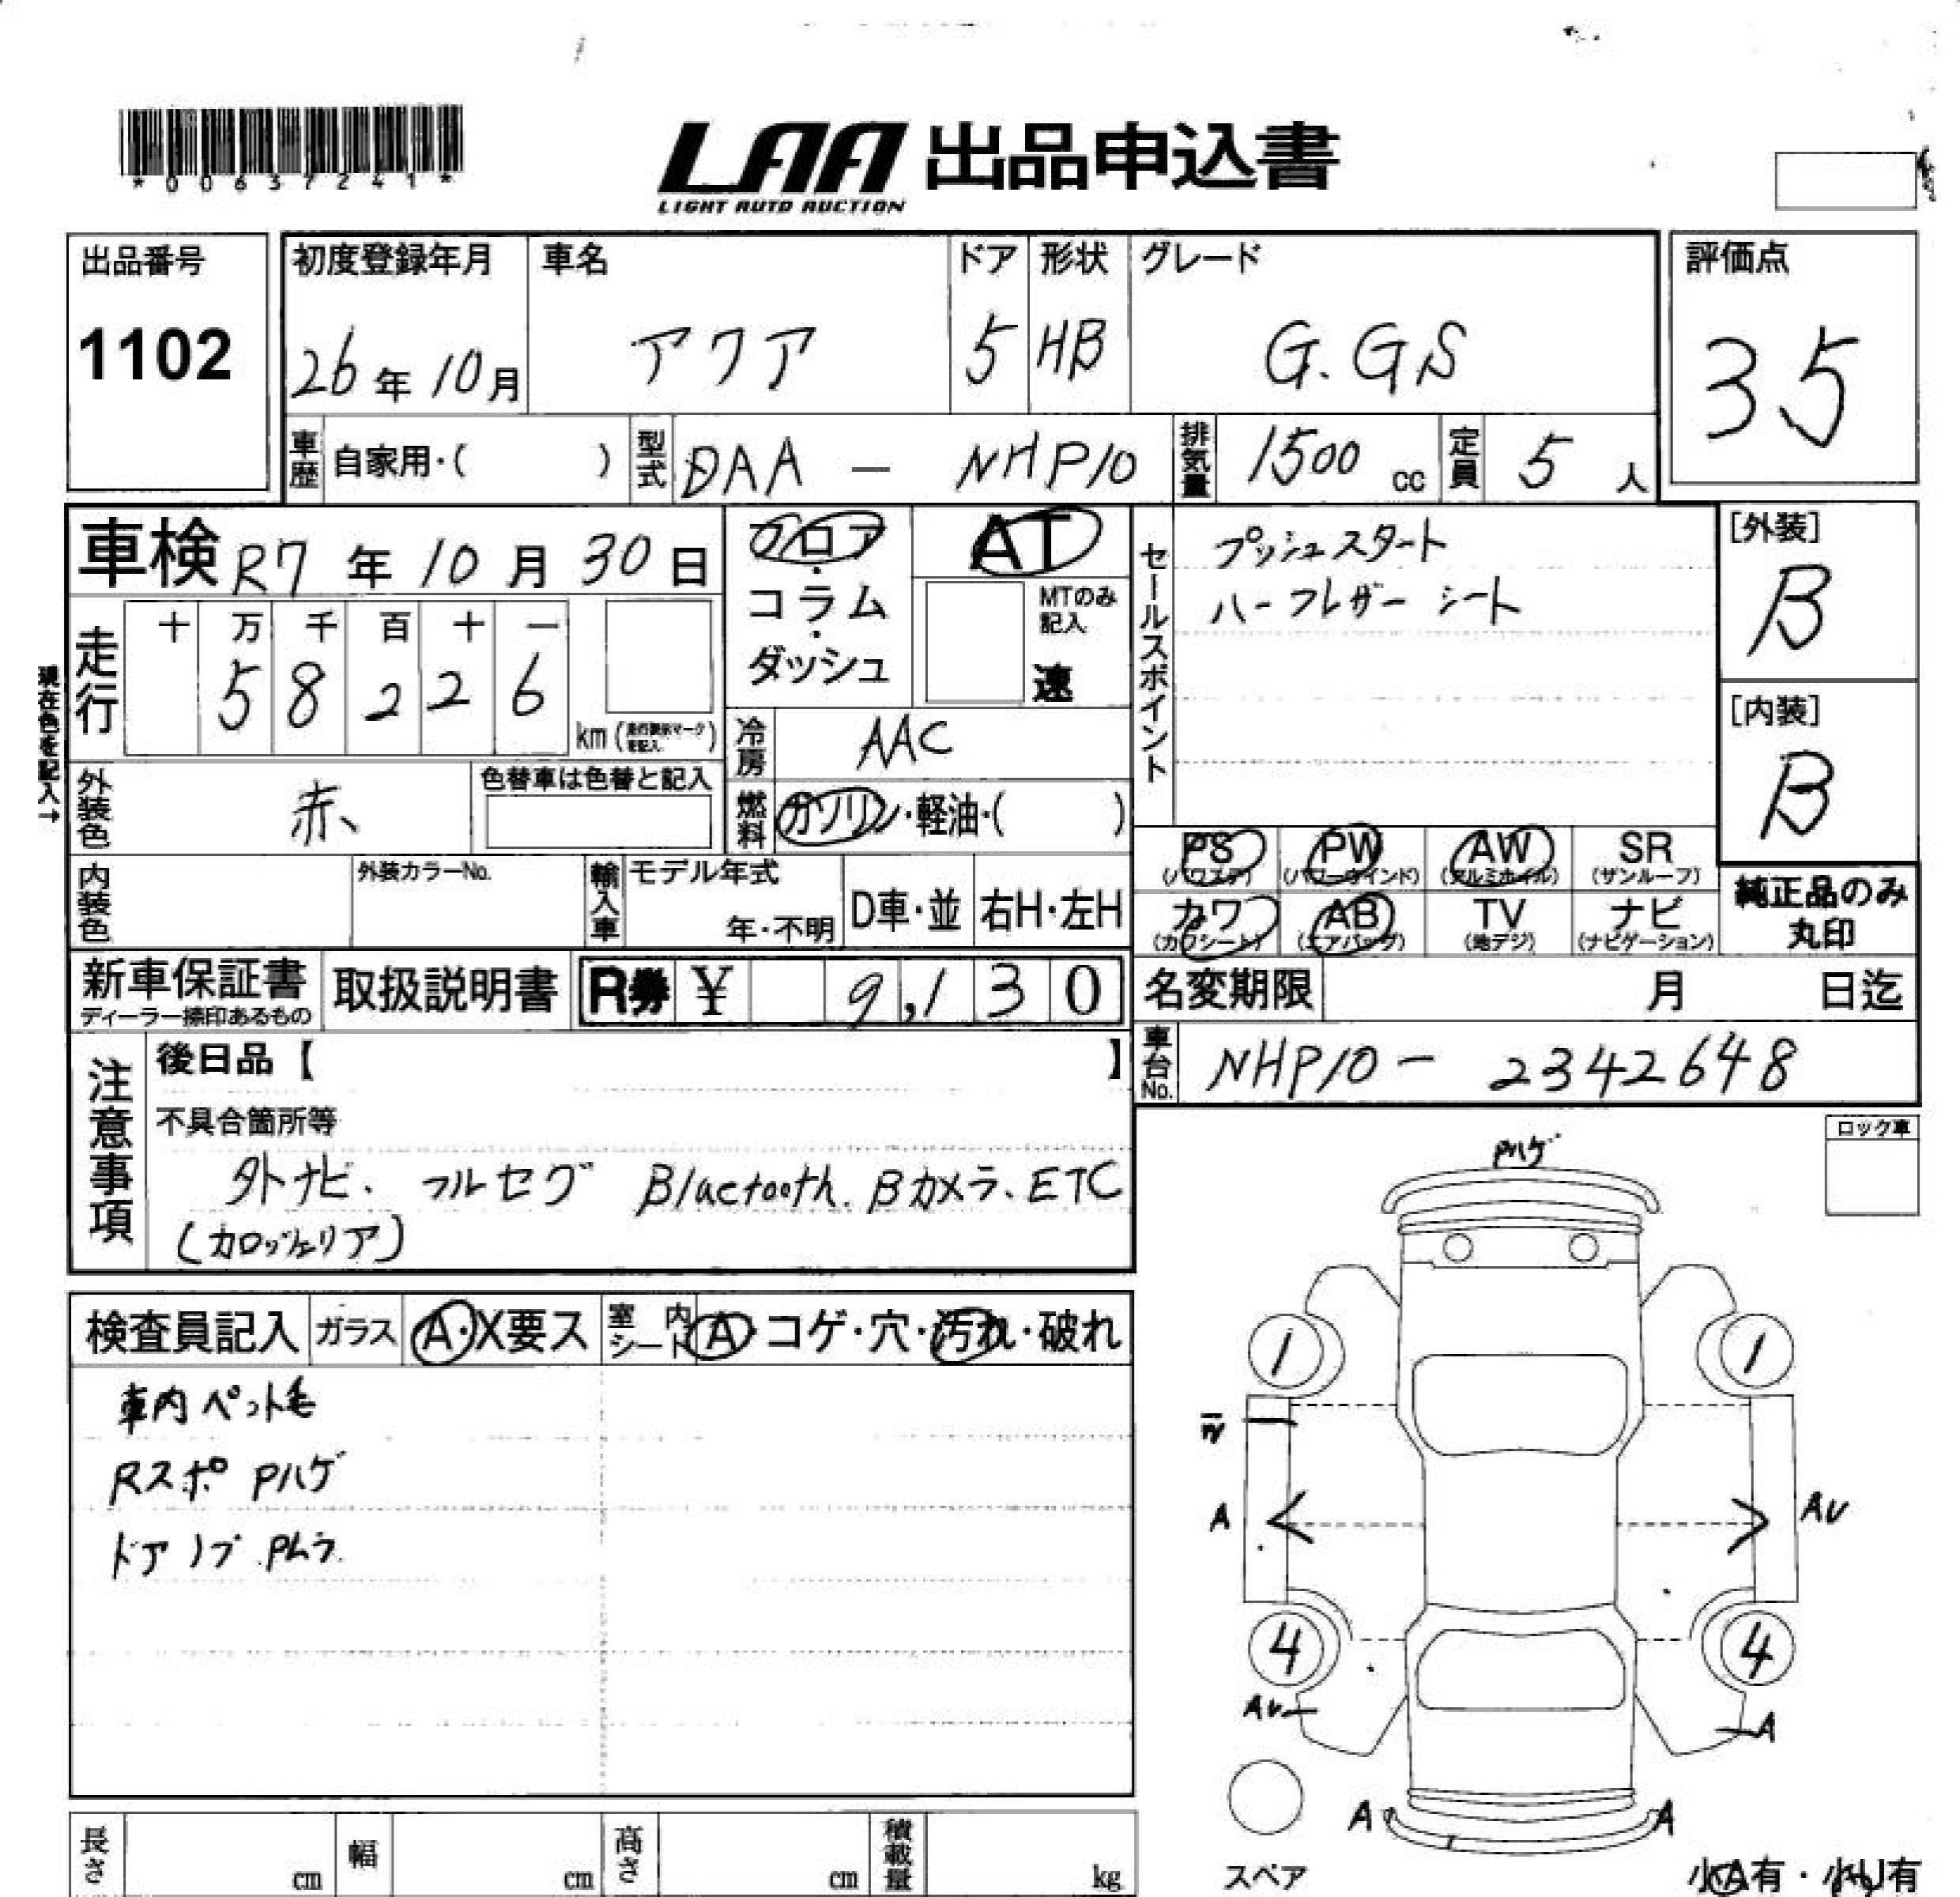 *00637241*
LAA 出品申込書
LIGHT AUTO AUCTION
出品番号
1102
初度登録年月
26年10月
車名
アクア
ドア
5
形状
HB
グレード
G.GS
評価点
35
車歴 自家用・( )
型式 DAA - NHP10
排気量 1500 cc
定員 5 人
車検 R7年10月30日
フロア・コラム・ダッシュ
AT
MTのみ記入
速
セールスポイント
プッシュスタート
ハーフレザーシート
[外装]
B
[内装]
B
走行
十 万 千 百 十 一
5 8 2 2 6
km
現在色を記入→
冷房 AAC
外装色 赤
色替車は色替と記入
燃料 ガソリン・軽油・( )
PS PW AW SR
(パワステ) (パワーウインド) (アルミホイル) (サンルーフ)
カワ AB TV ナビ
(カワシート) (エアバッグ) (地デジ) (ナビゲーション)
純正品のみ
丸印
内装色
外装カラーNo.
輸入車
モデル年式
年・不明
D車・並
右H・左H
新車保証書
ディーラー捺印あるもの
取扱説明書
R券 ¥ 9,130
名変期限 月 日迄
車台No. NHP10- 2342648
注意事項
後日品【 】
不具合箇所等
外ナビ、フルセグ Bluetooth. Bカメラ、ETC
(カロッツェリア)
ロック車
Pハゲ
検査員記入
ガラス A・X要ス
室内シート A・コゲ・穴・汚れ・破れ
車内ペット毛
Rスポ Pハゲ
ドアノブ Pムラ
1 1
W
A AU
4 4
AU A
A A
スペア
小A有・小U有
長さ cm
幅 cm
高さ cm
積載量 kg